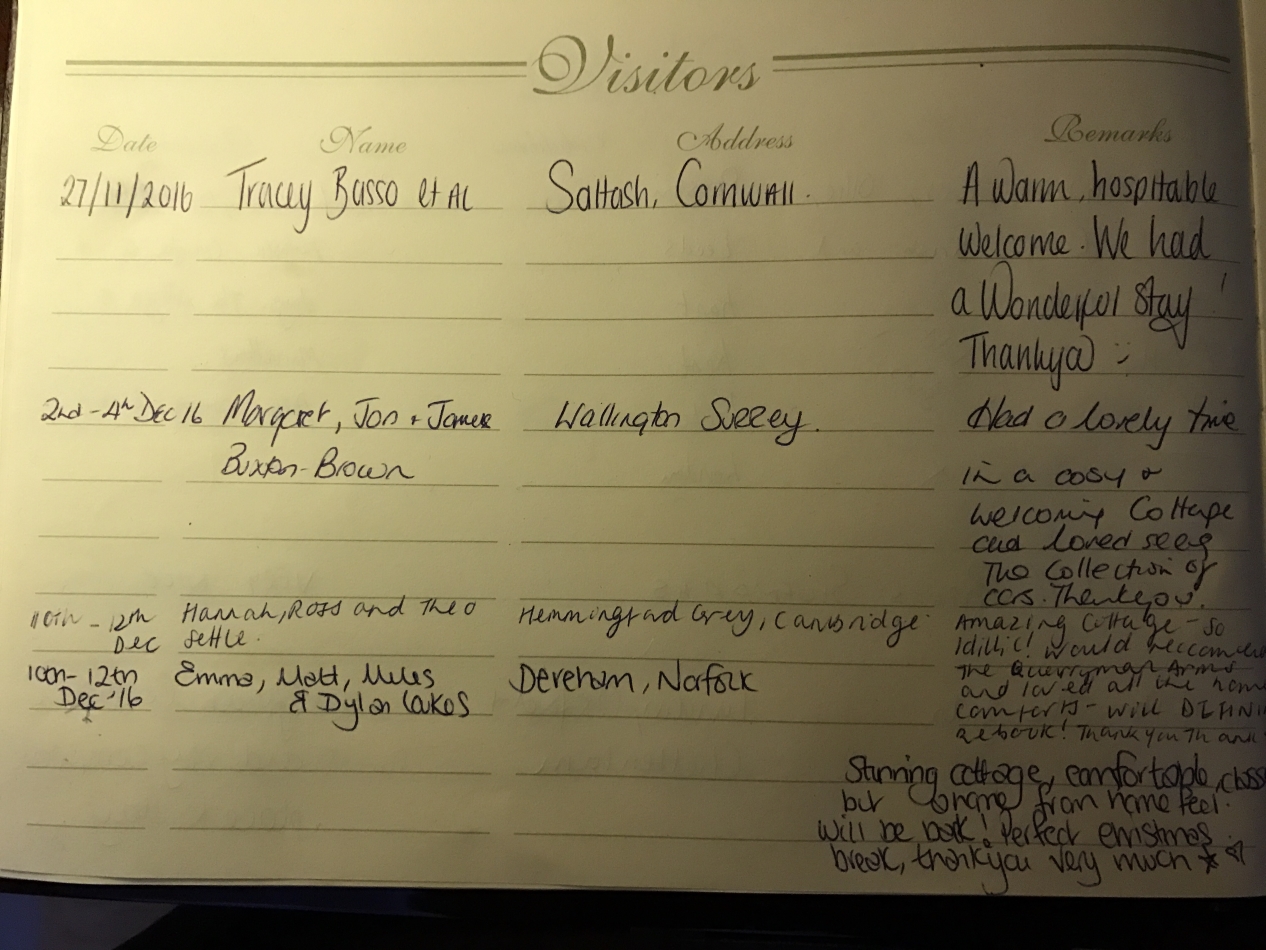 Visitors
Date Name Address Remarks
27/11/2016 Tracey Basso et AL Saltash, Cornwall. A warm, hospitable
welcome. We had
a wonderful stay!
Thankyou :-
2nd - 4th Dec 16 Margaret, Jon + James Wallington Surrey. Had a lovely time
Buxton-Brown in a cosy &
welcoming Cottage
and loved seeing
The Collection of
cars. Thankyou.
10th - 12th Hannah, Ross and Theo Hemmingford Grey, Cambridge. Amazing Cottage - so
Dec Settle. Idillic! Would reccomend
10th - 12th Emma, Matt, Miles Dereham, Norfolk The Quarryman Arms
Dec '16 & Dylan Oakes and loved all the home
comforts - will DEFINI
rebook! Thankyou Thank
Stunning cottage, comfortable, class
but home from home feel.
Will be back! Perfect christmas
break, thankyou very much